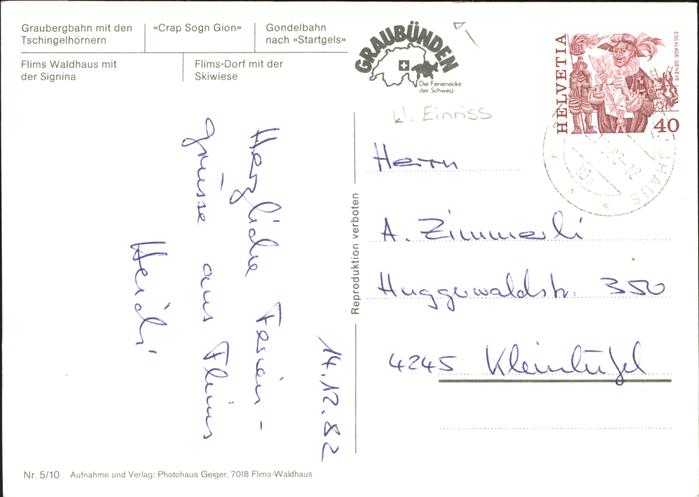 Graubergbahn mit den
Tschingelhörnern
«Crap Sogn Gion»
Gondelbahn
nach «Startgels»
Flims Waldhaus mit
der Signina
Flims-Dorf mit der
Skiwiese
GRAUBÜNDEN
Die Ferienecke
der Schweiz
HELVETIA
ESCALADE GENÈVE
40
kl. Einriss
Herzliche Ferien-
grüsse aus Flims
Heidi
14.12.82
Reproduktion verboten
Herrn
A. Zimmerli
Huggerwaldstr. 350
4245 Kleinlützel
Nr. 5/10 Aufnahme und Verlag: Photohaus Geiger, 7018 Flims-Waldhaus